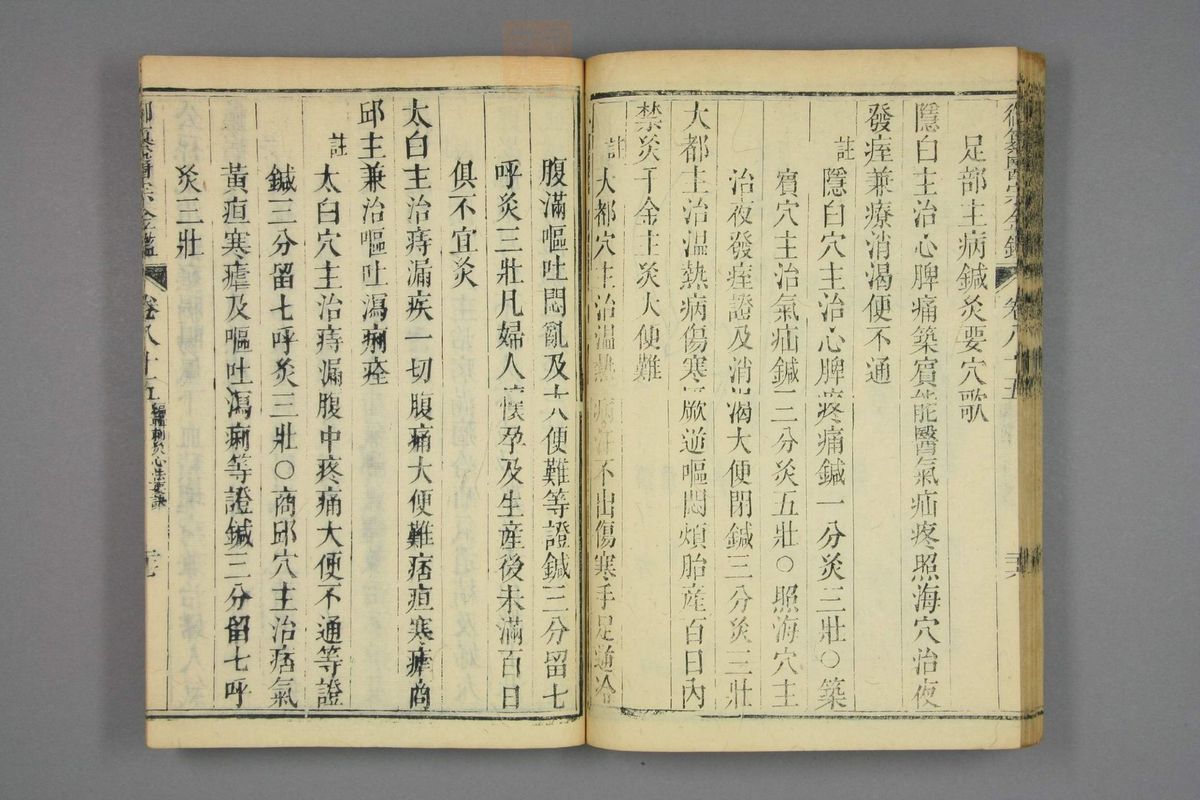 御纂醫宗金鑑 卷八十五 三六
足部主病鍼灸要穴歌
隱白主治心脾痛築賓能醫氣疝疼照海穴治夜
發痓兼療消渴便不通
註隱白穴主治心脾疼痛鍼一分灸三壯○築
賓穴主治氣疝鍼三分灸五壯○照海穴主
治夜發痓證及消渴大便閉鍼三分灸三壯
大都主治温熱病傷寒厥逆嘔悶煩胎產百日內
禁灸千金主灸大便難
註大都穴主治温熱病汗不出傷寒手足逆冷
腹滿嘔吐悶亂及大便難等證鍼三分留七
呼灸三壯凡婦人懷孕及生產後未滿百日
俱不宜灸
太白主治痔漏疾一切腹痛大便難痞疸寒瘧商
邱主兼治嘔吐瀉痢痊
註太白穴主治痔漏腹中疼痛大便不通等證
鍼三分留七呼灸三壯○商邱穴主治痞氣
黃疸寒瘧及嘔吐瀉痢等證鍼三分留七呼
灸三壯
御纂醫宗金鑑 卷八十五 編輯刺灸心法要訣 三七